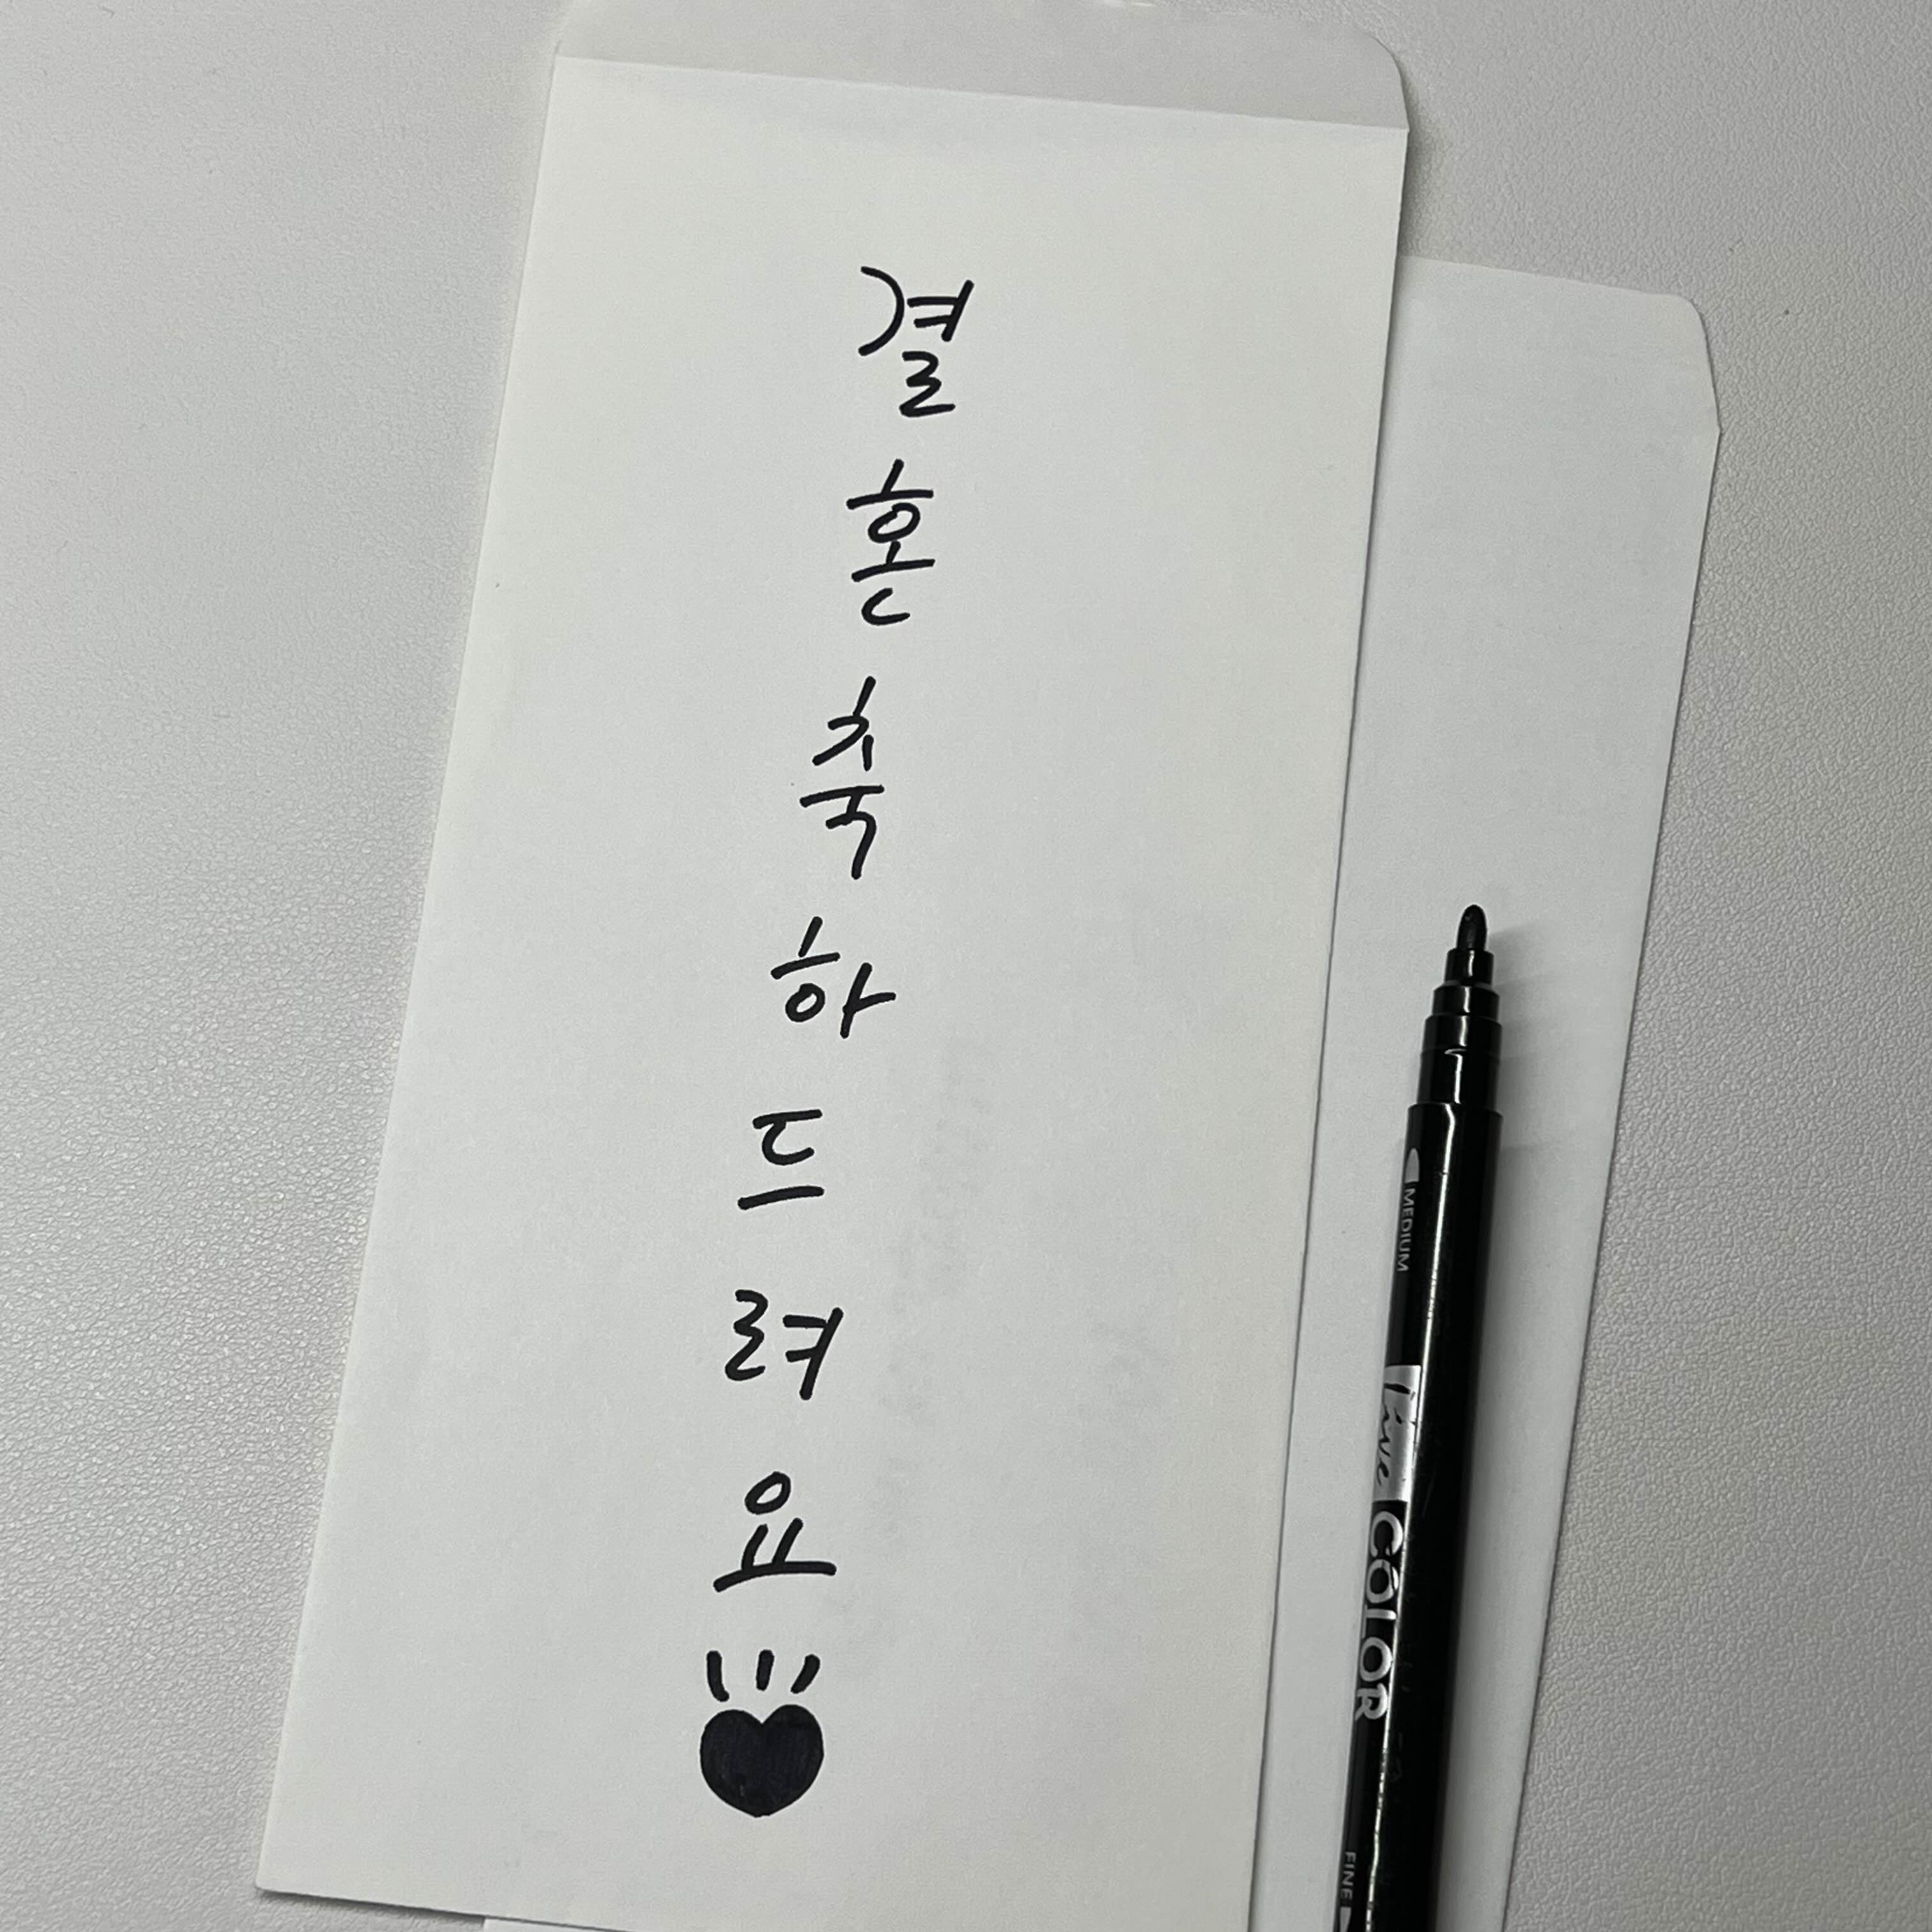 결혼축하드려요
MEDIUM
Live COLOR
FINE